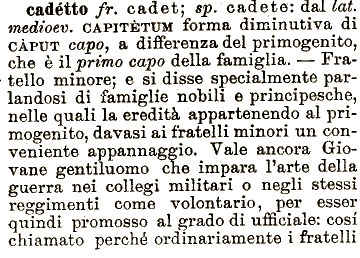 cadétto fr. cadet; sp. cadete: dal lat.
medioev. CAPITÈTUM forma diminutiva di
CÀPUT capo, a differenza del primogenito,
che è il primo capo della famiglia. — Fra-
tello minore; e si disse specialmente par-
landosi di famiglie nobili e principesche,
nelle quali la eredità appartenendo al pri-
mogenito, davasi ai fratelli minori un con-
veniente appannaggio. Vale ancora Gio-
vane gentiluomo che impara l'arte della
guerra nei collegi militari o negli stessi
reggimenti come volontario, per esser
quindi promosso al grado di ufficiale: cosí
chiamato perché ordinariamente i fratelli